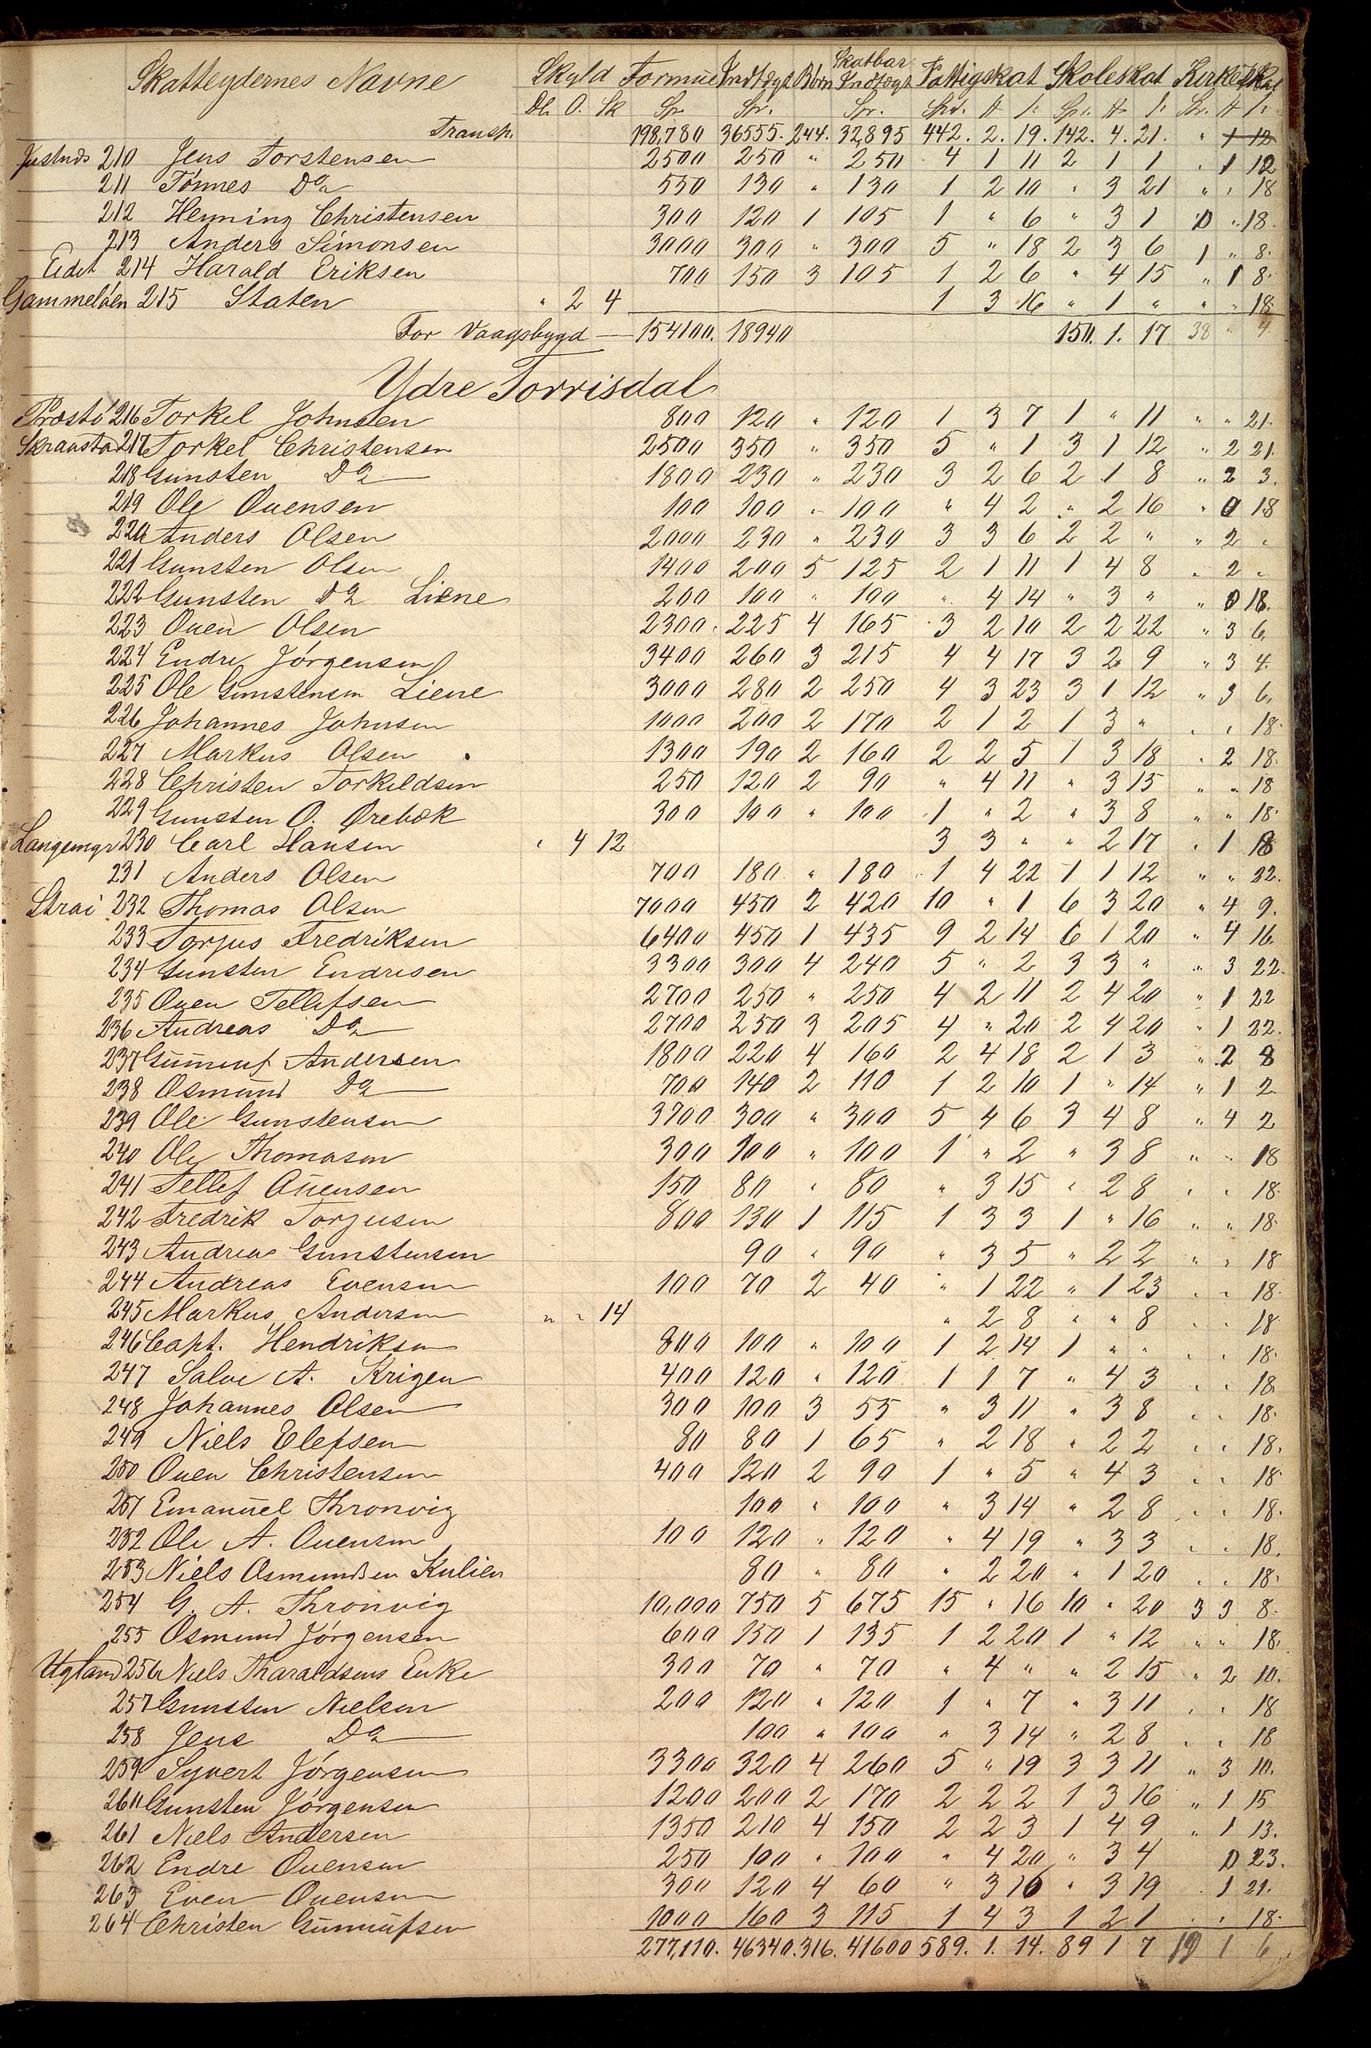 Skatteydernes Navne Skyld Formue Indtægt Børn Skatbar Indtægt Fattigskat Skoleskat Kirkeskat
Dl. O. Sk Sp. Sp. Sp. Spd. # ß: Sp. # ß: Sp. # ß:
Transp. 198,780 36555. 244. 32,895 442. 2. 19. 142. 4. 21. " 1 12
Justnes 210 Jens Torstensen 2500 250 " 250 4 1 11 2 1 1 . 1 12
211 Tønnes Do 550 130 " 130 1 2 10 " 3 21 " " 18
212 Henning Christensen 300 120 1 105 1 " 6 " 3 1 0 " 18.
213 Anders Simonsen 3000 300 " 300 5 " 18 2 3 6 1 " 8.
Eidet 214 Harald Eriksen 700 150 3 105 1 2 6 " 4 15 " 1 8.
Gammeløen 215 Staten " 2 4 1 3 16 " 1 " " " 18
For Vaagsbygd — 154100. 18940 150. 1. 17 38 " 4
Ydre Torrisdal
Præstø 216 Torkel Johnsen 800 120 " 120 1 3 7 1 " 11 " " 21.
Skraastad 217 Torkel Christensen 2500 350 " 350 5 " 1 3 1 12 " 2 21.
218 Gunsten Do 1800 230 " 230 3 2 6 2 1 8 " 2 3.
219 Ole Ouensen 100 100 " 100 " 4 2 " 2 16 " 0 18
220 Anders Olsen 2000 230 " 230 3 3 6 2 2 " " 2 "
221 Gunsten Olsen 1400 200 5 125 2 1 11 1 4 8 " 2 "
222 Gunsten Do Liene 200 100 " 100 " 4 14 " 3 " " 0 18.
223 Ouen Olsen 2300. 225 4 165 3 2 10 2 2 22 " 3 6.
224 Endre Jørgensen 3400 260 3 215 4 4 17 3 2 9 " 3 4.
225 Ole Gunstensen Liene 3000 280 2 250 4 3 23 3 1 12 " 3 6.
226 Johannes Johnsen 1000 200 2 170 2 1 2 1 3 " . . 18.
227 Markus Olsen 1300 190 2 160 2 2 5 1 3 18 . 2 18.
228 Christen Torkildsen 250 120 2 90 " 4 11 " 3 15 " " 18
229 Gunsten O. Ørebæk 300 100 " 100 1 " 2 " 3 8 " " 18.
Langemyr 230 Carl Hansen " 4 12 3 3 " " 2 17 . 1 18
231 Anders Olsen 700 180 " 180 1 4 22 1 1 12 " " 22.
Strai 232 Thomas Olsen 7000 450 2 420 10 " 1 6 3 20 " 4 9.
233 Torjus Fredriksen 6400 450 1 435 9 2 14 6 1 20 " 4 16.
234 Gunsten Endresen 3300 300 4 240 5 " 2 3 3 " " 3 22.
235 Ouen Tellefsen 2700 250 " 250 4 2 11 2 4 20 " 1 22
236 Andreas Do 2700 250 3 205 4 " 20 2 4 20 " 1 22.
237 Gunnuf Andersen 1800 220 4 160 2 4 18 2 1 3 " 2 8
238 Osmund Do 700 140 2 110 1 2 10 1 " 14 " 1 2
239 Ole Gunstensen 3700 300 " 300 5 4 6 3 4 8 " 4 2
240 Ole Thomasen 300 100 " 100 1 " 2 " 3 8 " " 18
241 Tellef Ouensen 150 80 " 80 " 3 15 " 2 8 . . 18.
242 Fredrik Torjusen 800 130 1 115 1 3 3 1 " 16 " " 18.
243 Andreas Gunstensen 90 " 90 " 3 5 " 2 2 " " 18
244 Andreas Evensen 100 70 2 40 " 1 22 " 1 23 . . 18.
245 Markus Andersen " " 14 " 2 8 " " 8 . . 18
246 Capt. Hendriksen 800 100 " 100 1 2 14 1 " " . . 18.
247 Salve A. Krigen 400 120 " 120 1 1 7 " 4 3 . . 18.
248 Johannes Olsen 300 100 3 55 " 3 11 " 3 8 . . 18.
249 Niels Elefsen 80 80 1 65 " 2 18 " 2 2 . . 18.
250 Ouen Christensen 400 120 2 90 1 " 5 " 4 3 . . 18
251 Emanuel Thronvig 100 " 100 " 3 14 " 2 8 . . 18.
252 Ole A. Ouensen 100 120 " 120 " 4 19 " 3 3 . . 18.
253 Niels Osmundsen Kulien 80 " 80 " 2 20 " 1 20 . . 18.
254 G. A. Thronvig 10,000 750 5 675 15 " 16 10 " 20 3 3 8.
255 Osmund Jørgensen 600 150 1 135 1 2 20 1 " 12 " " 18.
Ugland 256 Niels Tharaldsens Enke 300 70 " 70 " 4 " " 2 15 " 2 10.
257 Gunsten Nielsen 200 120 " 120 1 " 7 " 3 11 . . 18
258 Jens Do 100 " 100 " 3 14 " 2 8 . . 18
259 Syvert Jørgensen 3300 320 4 260 5 " 19 3 3 11 " 3 10.
260 Gunsten Jørgensen 1200 200 2 170 2 2 2 1 3 16 " 1 15
261 Niels Andersen 1350 210 4 150 2 2 3 1 4 9 " 1 13.
262 Endre Ouensen 250 100 " 100 " 4 20 " 3 4 0 23.
263 Even Ouensen 300 120 4 60 " 3 16 " 3 19 . 1 21.
264 Christen Gunnufsen 1000 160 3 115 1 4 3 1 2 1 . . 18.
277,110. 46340. 316. 41600 589. 1. 14. 89 1 7 19 1 6